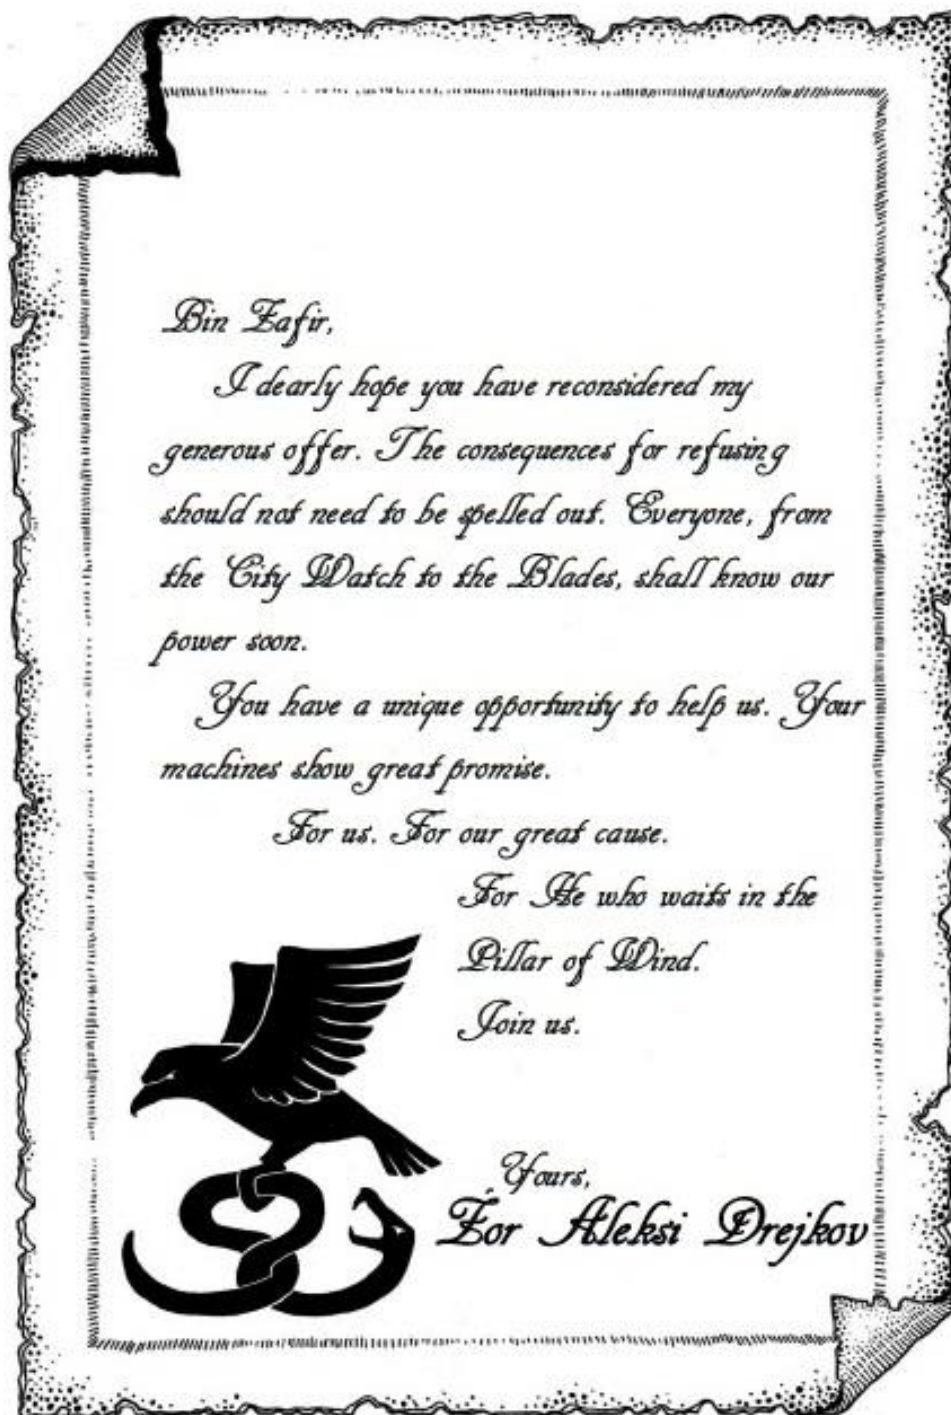 Bin Zafir,
I dearly hope you have reconsidered my
generous offer. The consequences for refusing
should not need to be spelled out. Everyone, from
the City Watch to the Blades, shall know our
power soon.
You have a unique opportunity to help us. Your
machines show great promise.
For us. For our great cause.
For He who waits in the
Pillar of Wind.
Join us.
Yours,
Źor Aleksi Drejkov